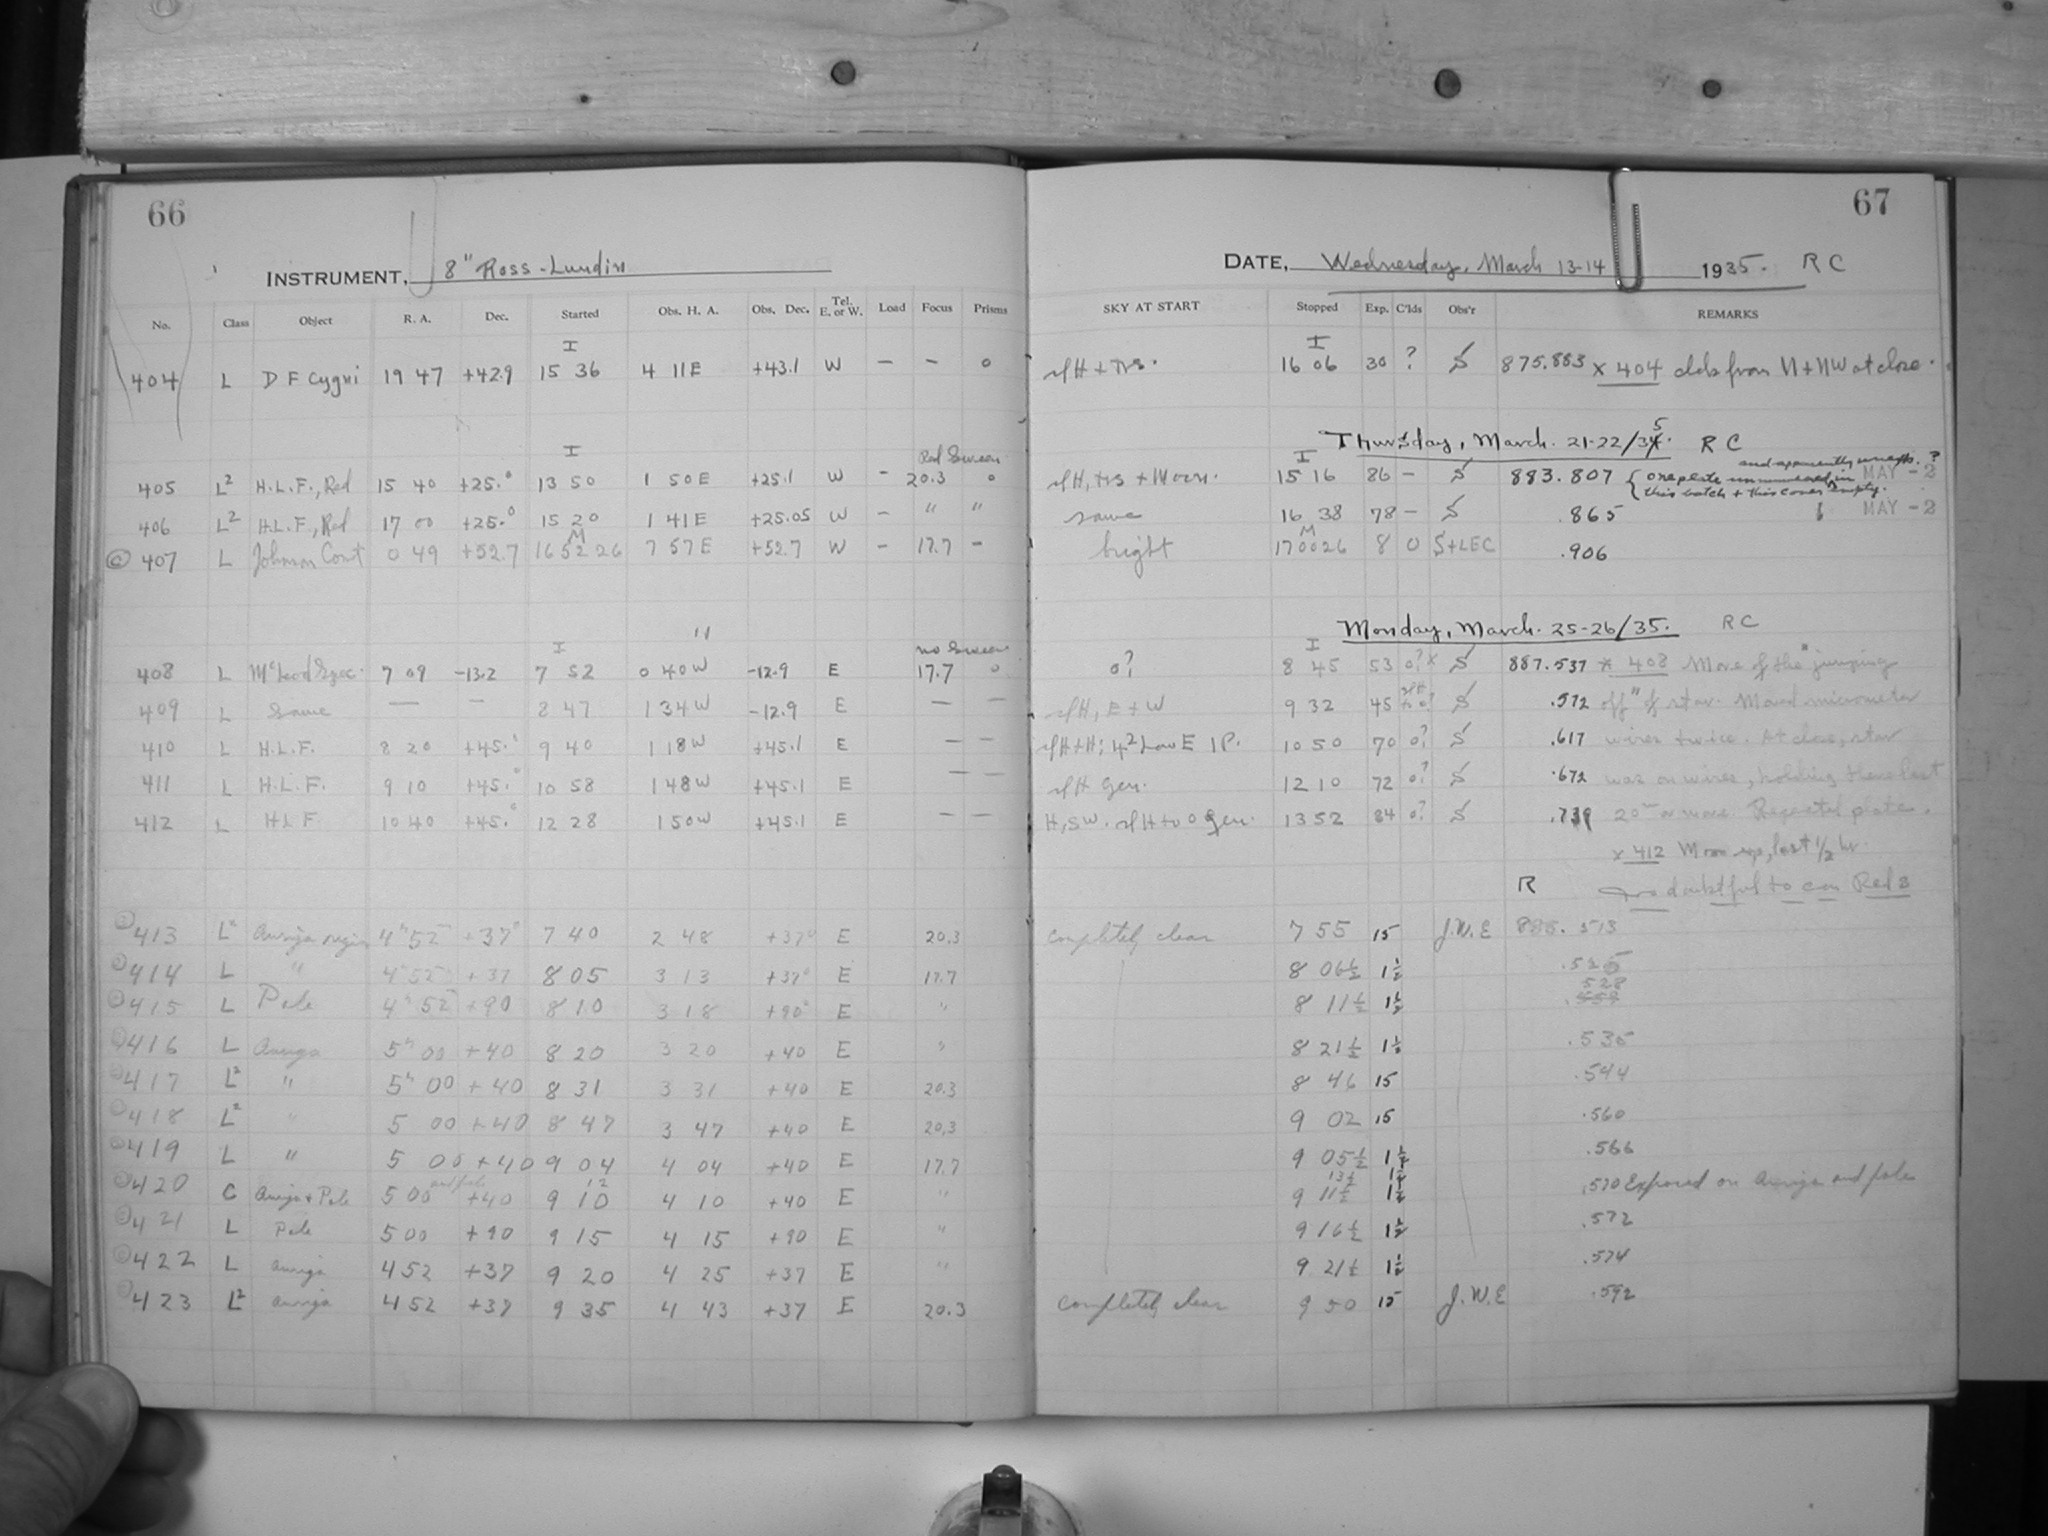 66
INSTRUMENT, 8" Ross-Lundin
No. Class Object R. A. Dec. Started Obs. H. A. Obs. Dec. Tel. E. or W. Load Focus Prisms
I
404 L DF Cygni 19 47 +42.9 15 36 4 11E +43.1 W — — 0
I Red Screen
405 L² H.L.F., Red 15 40 +25.° 13 50 1 50E +25.1 W - 20.3 0
406 L² H.L.F., Red 17 00 +25.° 15 20 1 41E +25.05 W - " "
M
407 L Johnson Comt 0 49 +52.7 16 52 26 7 57E +52.7 W - 17.7 -
I no Screen
408 L McLeod Spec. 7 09 -13.2 7 52 0 40W -12.9 E 17.7 0
409 L Same — — 8 47 1 34W -12.9 E — —
410 L H.L.F. 8 20 +45. 9 40 1 18W +45.1 E — —
411 L H.L.F. 9 10 +45.° 10 58 1 48W +45.1 E — —
412 L HLF 10 40 +45.° 12 28 1 50W +45.1 E — —
413 L² Auriga region 4h 52 +37° 7 40 2 48 +37° E 20.3
414 L " 4h 52 +37 8 05 3 13 +37° E 17.7
415 L Pole 4h 52 +90 8 10 3 18 +90° E "
416 L Auriga 5h 00 +40 8 20 3 20 +40 E "
417 L² " 5h 00 +40 8 31 3 31 +40 E 20.3
418 L² " 5 00 +40 8 47 3 47 +40 E 20.3
419 L " 5 00 +40 9 04 4 04 +40 E 17.7
and pole 12
420 C Auriga + Pole 5 00 +40 9 10 4 10 +40 E "
421 L Pole 5 00 +90 9 15 4 15 +90 E "
422 L Auriga 4 52 +37 9 20 4 25 +37 E "
423 L² Auriga 4 52 +37 9 35 4 43 +37 E 20.3
67
DATE, Wednesday, March 13-14 1935. RC
SKY AT START Stopped Exp. C'lds Obs'r REMARKS
I
16 06 30 ? S 875.883 x 404 clds from N + NW at close.
Thursday, March. 21-22/345. RC
I and apparently
15 16 86 - S 883.807 { one plate unnumbered in MAY -2
this batch + this cover empty.
same 16 38 78 - S .865 MAY -2
M
bright 17 00 26 8 0 S+LEC .906
Monday, March. 25-26/35. RC
I
0? 8 45 53 0? x S 887.537 x 408 More of the "jumping
9 32 45 S .572 off" of star. Moved micrometer
10 50 70 0? S .617 wires twice. At close, star
12 10 72 0? S .672 was on wires, holding there last
13 52 84 0? S .739 20m or more. Repeated plate.
x 412 Moon up, last 1/2 hr.
R doubtful to Red 3
completely clear 7 55 15 J.W.E 885.513
8 06½ 1½
528
8 11½ 1½
8 21½ 1½ .535
8 46 15 .544
9 02 15 .560
9 05½ 1½ .566
13½ 1½
9 11½ 1½ .570 Exposed on Auriga and pole
9 16½ 1½ .572
9 21½ 1½ .574
completely clear 9 50 15 J.W.E .592